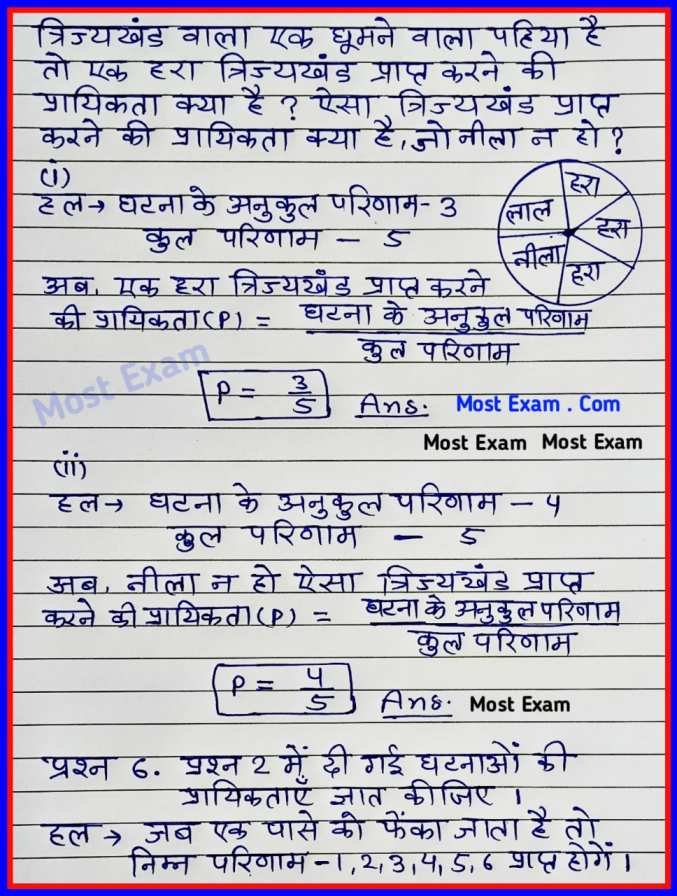 त्रिज्यखंड वाला एक घूमने वाला पहिया है
तो एक हरा त्रिज्यखंड प्राप्त करने की
प्रायिकता क्या है ? ऐसा त्रिज्यखंड प्राप्त
करने की प्रायिकता क्या है, जो नीला न हो ?
(i)
हल→ घटना के अनुकुल परिणाम - 3
कुल परिणाम - 5
हरा
लाल
हरा
नीला
हरा
अब, एक हरा त्रिज्यखंड प्राप्त करने
की प्रायिकता (P) = घटना के अनुकुल परिणाम
कुल परिणाम
Most Exam
P = 3/5 Ans. Most Exam . Com
Most Exam Most Exam
(ii)
हल→ घटना के अनुकुल परिणाम - 4
कुल परिणाम - 5
अब, नीला न हो ऐसा त्रिज्यखंड प्राप्त
करने की प्रायिकता (P) = घटना के अनुकुल परिणाम
कुल परिणाम
P = 4/5 Ans. Most Exam
प्रश्न 6. प्रश्न 2 में दी गई घटनाओं की
प्रायिकताएँ ज्ञात कीजिए ।
हल → जब एक पासे को फेंका जाता है तो
निम्न परिणाम - 1, 2, 3, 4, 5, 6 प्राप्त होगें ।